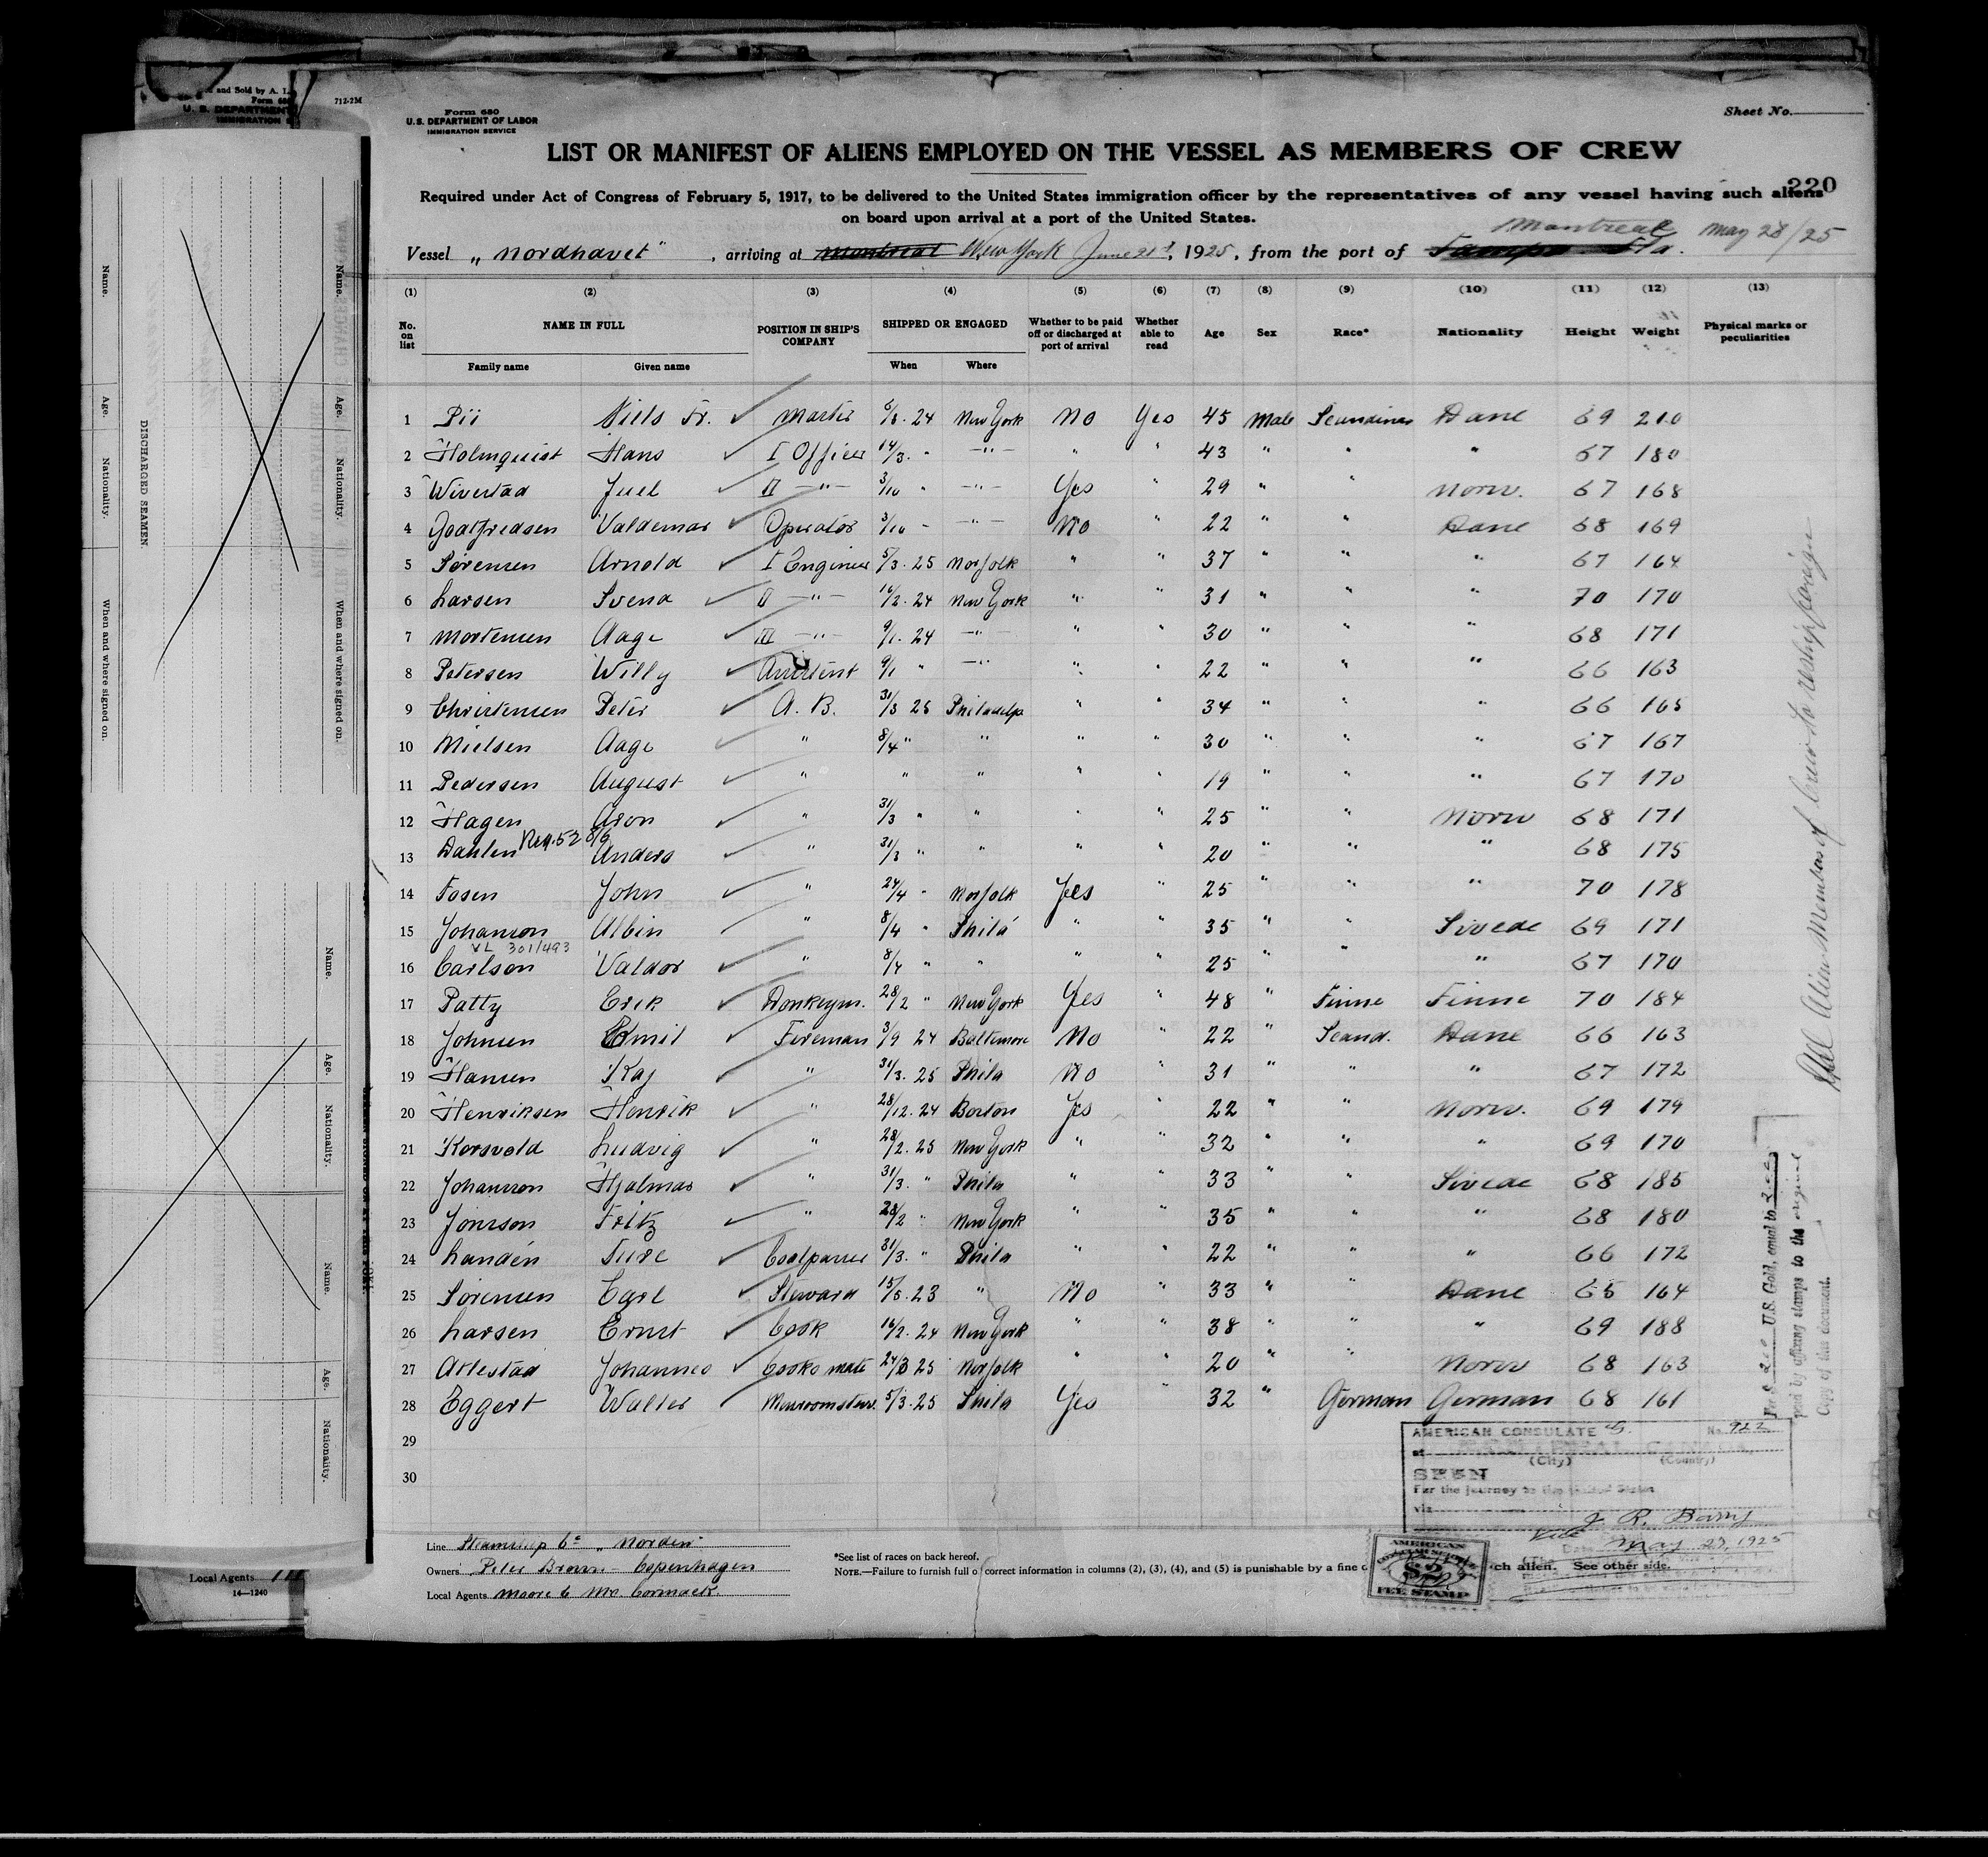 and Sold by A. L.
Form 680
U. S. DEPARTMENT
IMMIGRATION S
712-2M
Form 680
U. S. DEPARTMENT OF LABOR
IMMIGRATION SERVICE
Sheet No.
LIST OR MANIFEST OF ALIENS EMPLOYED ON THE VESSEL AS MEMBERS OF CREW
220
Required under Act of Congress of February 5, 1917, to be delivered to the United States immigration officer by the representatives of any vessel having such aliens
on board upon arrival at a port of the United States.
Montreal May 28/25
Vessel „ Nordhavet " , arriving at Montreal New York June 21st, 1925, from the port of Tampa Fla.
(1) (2) (3) (4) (5) (6) (7) (8) (9) (10) (11) (12) (13)
No. on list NAME IN FULL POSITION IN SHIP'S COMPANY SHIPPED OR ENGAGED Whether to be paid off or discharged at port of arrival Whether able to read Age Sex Race* Nationality Height Weight Physical marks or peculiarities
Family name Given name When Where
1 Pii Niels Fr. Master 5/8. 24 New York No Yes 45 Male Scandinav Dane 69 210
2 Holmquist Hans I Officer 14/3. " —"— " " 43 " " " 67 180
3 Wivestad Juel II —"— 3/10 " —"— Yes " 29 " " Norw. 67 168
4 Godtfredsen Valdemar Operator 3/10 - —"— No " 22 " " Dane 68 169
5 Sörensen Arnold I Engineer 5/3. 25 Norfolk " " 37 " " " 67 164
6 Larsen Svend II —"— 16/2. 24 New York " " 31 " " " 70 170
7 Mortensen Aage III —"— 9/1. 24 —"— " " 30 " " " 68 171
8 Petersen Willy Assistent 9/1 " —"— " " 22 " " " 66 163
9 Christensen Peter A. B. 31/3 25 Philadelp " " 34 " " " 66 165
10 Nielsen Aage " 8/4 " " " " 30 " " " 67 167
11 Pedersen August " " " " " 19 " " " 67 170
12 Hagen Aron " 31/3 " " " " 25 " " Norw 68 171
13 Dahlen Anders " 31/3 " " " " 20 " " " 68 175
14 Fosen John " 24/4 - Norfolk Yes " 25 " " " 70 178
15 Johanson Albin " 8/4 " Phila " " 35 " " Swede 69 171
VL 301/493
16 Carlson Valdor " 8/4 " " " " 25 " " " 67 170
17 Patty Erik Donkeym. 28/2 " New York Yes " 48 " Finne Finne 70 184
18 Johnsen Emil Fireman 3/9 24 Baltimore No " 22 " Scand. Dane 66 163
19 Hansen Kaj " 31/3. 25 Phila No " 31 " " " 67 172
20 Henriksen Henrik " 28/12. 24 Boston Yes " 22 " " Norw. 69 179
21 Korsvold Ludvig " 28/2. 25 New York " " 32 " " " 69 170
22 Johansson Hjalmar " 31/3. " Phila " " 33 " " Swede 68 185
23 Jonsson Fritz " 28/2 " New York " " 35 " " " 68 180
24 Landén Ture Coalpasser 31/3. " Phila " " 22 " " " 66 172
25 Sörensen Carl Steward 15/8. 23 " No " 33 " " Dane 65 164
26 Larsen Ernst Cook 16/2. 24 New York " " 38 " " " 69 188
27 Arlestad Johannes Cooks mate 24/3 25 Norfolk " " 20 " " Norw 68 163
28 Eggert Walter Messroomstew. 5/3. 25 Phila Yes " 32 " German German 68 161
29
30
All Alien Members of Crew to reship foreign
U.S. Gold, equal to
paid by affixing stamps to the original
Copy of this document.
AMERICAN CONSULATE No. 922
at
(City) (Country)
SEEN
For the journey to the United States
via
J. R. Barry
Vice
Date May 27, 1925
AMERICAN
CONSULAR SERVICE
$2
FEE STAMP
Line Steamship Co „ Norden "
Owners Peter Brown. Copenhagen
Local Agents Moore & Mc Cormack
*See list of races on back hereof.
NOTE.—Failure to furnish full o correct information in columns (2), (3), (4), and (5) is punishable by a fine ch alien. See other side.
Name. Age. Nationality. When and where signed on.
DISCHARGED SEAMEN.
Name. Age. Nationality. When and where signed on.
Name. Age. Nationality.
Name. Age. Nationality.
Local Agents
14—1240